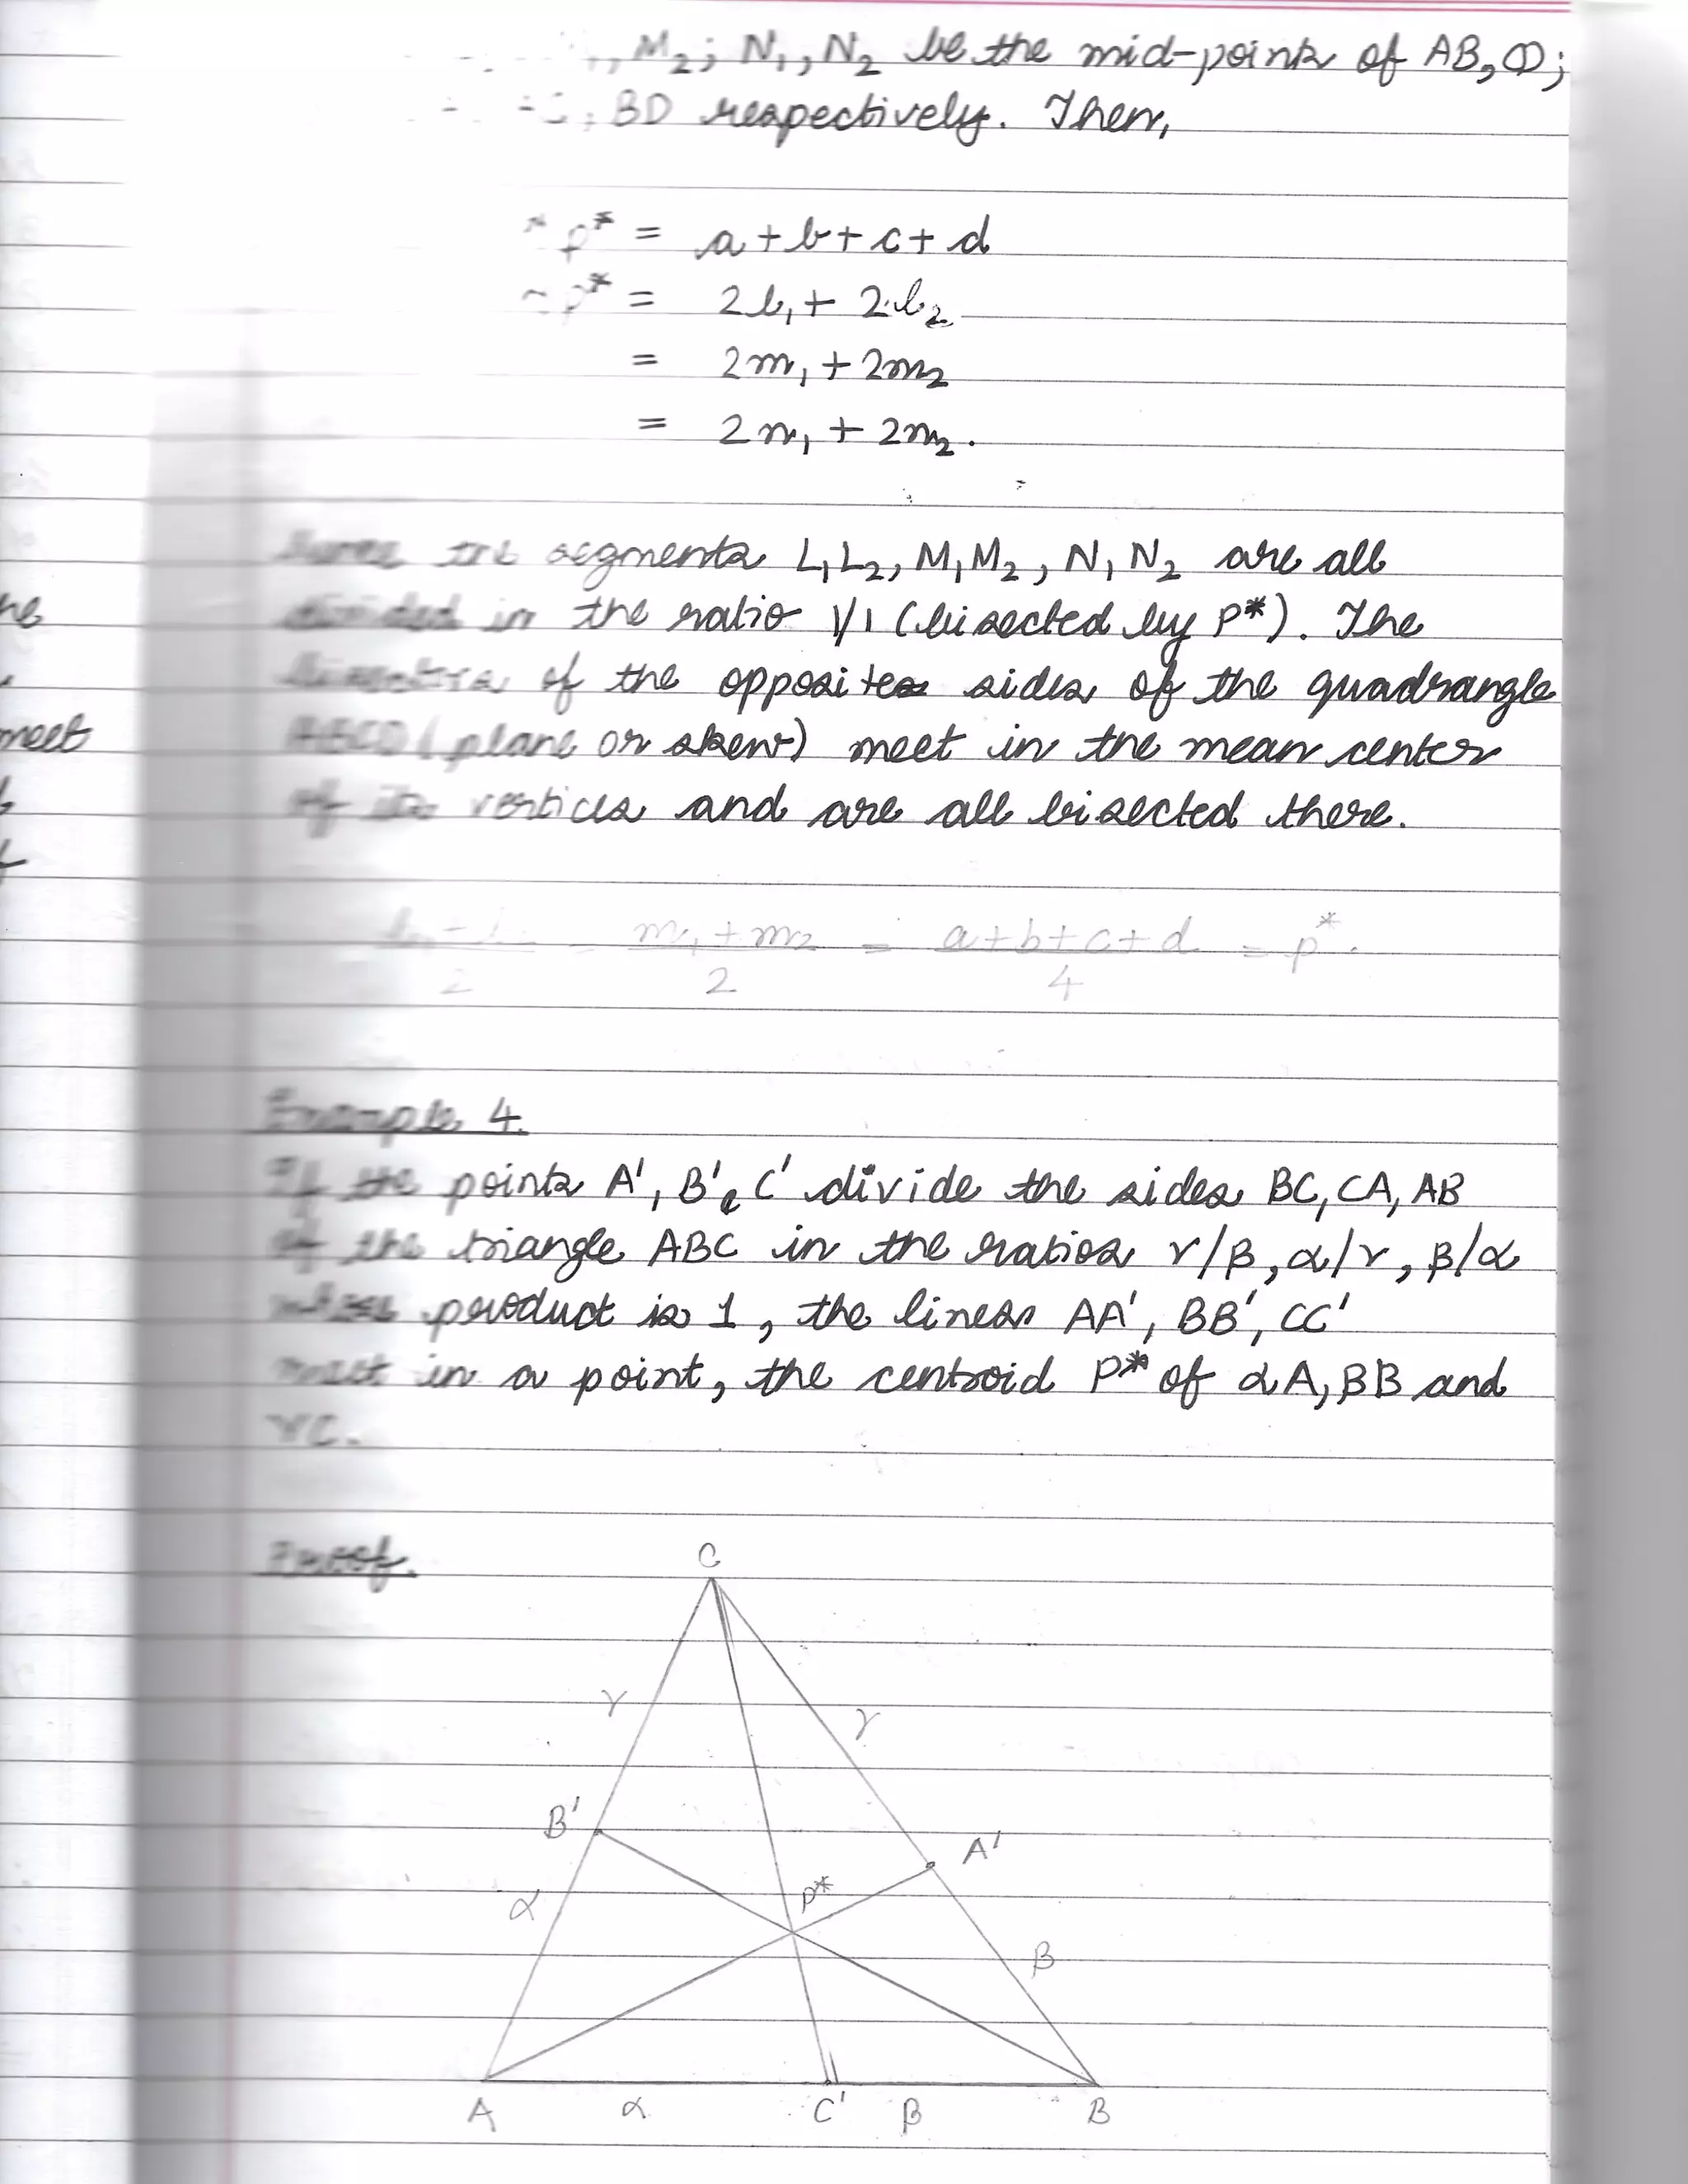 M₂; N₁, N₂ be the mid-points of AB, CD;
BD respectively. Then,
p* = a + b + c + d
p* = 2l₁ + 2l₂
= 2m₁ + 2m₂
= 2n₁ + 2n₂.
Hence the segments L₁L₂, M₁M₂, N₁N₂ are all
divided in the ratio 1/1 (bisected by P*). The
of the opposite sides of the quadrangle
ABCD (plane or skew) meet in the mean center
of its vertices and are all bisected there.
he
meet
m₁ + m₂ / 2 = a + b + c + d / 4 = p*.
2
Example 4.
If the points A', B', C' divide the sides BC, CA, AB
of the triangle ABC in the ratios γ/β, α/γ, β/α
whose product is 1, the lines AA', BB', CC'
meet in a point, the centroid P* of αA, βB and
γC.
Proof.
C
γ
γ
B'
A'
α
P*
β
A
α
C'
β
B